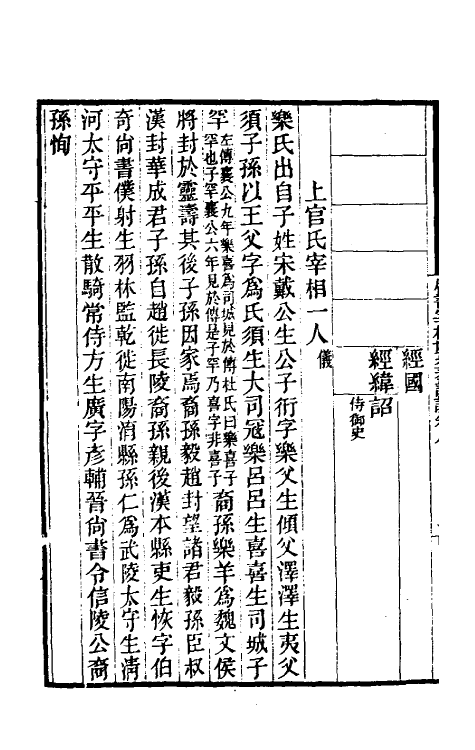 經國
經緯詔
侍御史
上官氏宰相一人儀
樂氏出自子姓宋戴公生公子衎字樂父生傾父澤澤生夷父
須子孫以王父字爲氏須生大司寇樂呂呂生喜喜生司城子
罕左傳襄公九年樂喜爲司城見於傳杜氏曰樂喜子罕也子罕襄公六年見於傳是子罕乃喜字非喜子裔孫樂羊爲魏文侯
將封於靈壽其後子孫因家焉裔孫毅趙封望諸君毅孫臣叔
漢封華成君子孫自趙徙長陵裔孫親後漢本縣吏生恢字伯
奇尚書僕射生羽林監乾徙南陽淯縣孫仁爲武陵太守生淸
河太守平平生散騎常侍方生廣字彥輔晉尚書令信陵公裔
孫恂